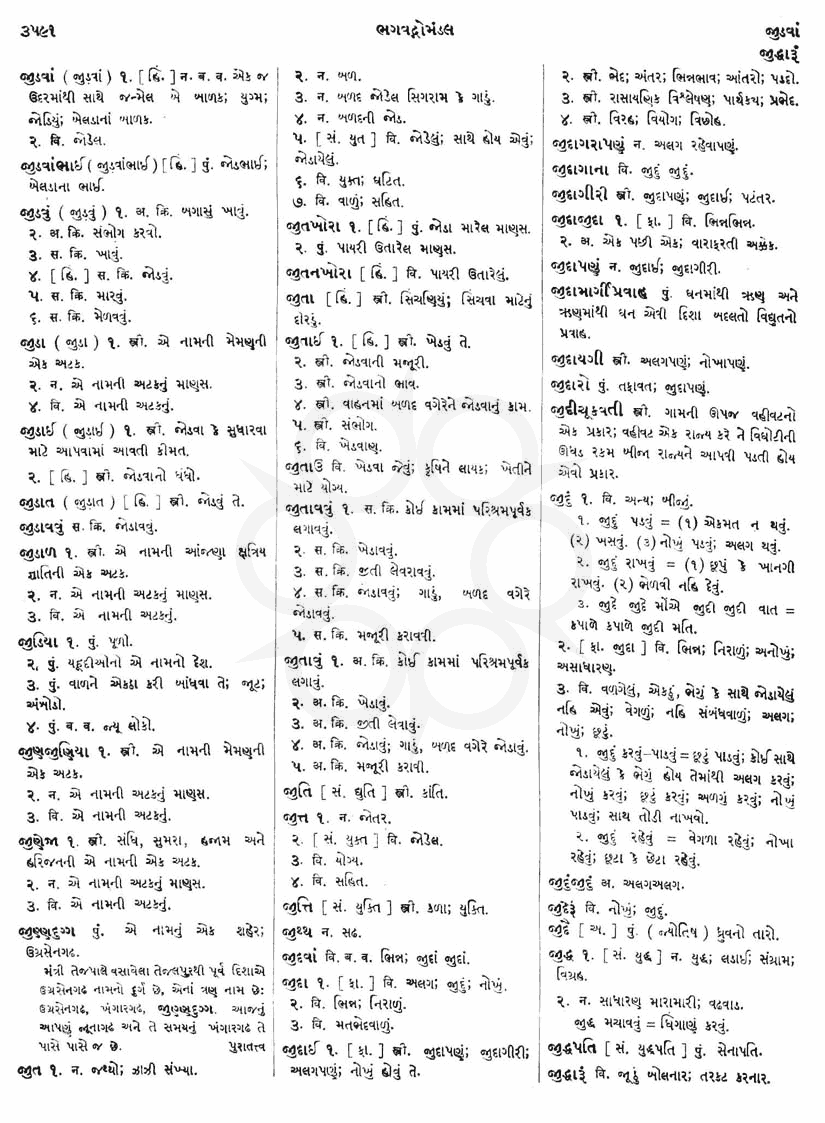 ૩૫૯૧
ભગવદ્ગોમંડલ
જીડવાં
જીદ્ધારૂં
જીડવાં ( જીડવાં ) ૧. [ હિં. ] ન. બ. વ. એક જ
ઉદરમાંથી સાથે જન્મેલ બે બાળક; યુગ્મ;
જોડિયું; બેલડાનાં બાળક.
૨. વિ. જોડેલ.
જીડવાંભાઈ ( જીડવાંભાઈ ) [ હિં. ] પું. જોડભાઈ;
બેલડાના ભાઈ.
જીડવું ( જીડવું ) ૧. અ. ક્રિ. બગાસું ખાવું.
૨. અ. ક્રિ. સંભોગ કરવો.
૩. સ. ક્રિ. ખાવું.
૪. [ હિં. ] સ. ક્રિ. જોડવું.
૫. સ. ક્રિ. મારવું.
૬. સ. ક્રિ. મેળવવું.
જીડા ( જીડા ) ૧. સ્ત્રી. એ નામની મેમણની
એક અટક.
૨. ન. એ નામની અટકનું માણસ.
૪. વિ. એ નામની અટકનું.
જીડાઈ ( જીડાઈ ) ૧. સ્ત્રી. જોડવા કે સુધારવા
માટે આપવામાં આવતી કીમત.
૨. [ હિં. ] સ્ત્રી. જોડવાનો ધંધો.
જીડાત ( જીડાત ) [ હિં. ] સ્ત્રી. જોડવું તે.
જીડાવવું સ. ક્રિ. જોડાવવું.
જીડાળ ૧. સ્ત્રી. એ નામની આંજણા ક્ષત્રિય
જ્ઞાતિની એક અટક.
૨. ન. એ નામની અટકનું માણસ.
૩. વિ. એ નામની અટકનું.
જીડિયા ૧. પું. પૂળો.
૨. પું. યહૂદીઓનો એ નામનો દેશ.
૩. પું. વાળને એકઠા કરી બાંધવા તે; જૂટ;
અંબોડો.
૪. પું. બ. વ. ન્યૂ લોકો.
જીણજીણિયા ૧. સ્ત્રી. એ નામની મેમણની
એક અટક.
૨. ન. એ નામની અટકનું માણસ.
૩. વિ. એ નામની અટકનું.
જીણેજા ૧. સ્ત્રી. સંધિ, સુમરા, હજામ અને
હરિજનની એ નામની એક અટક.
૨. ન. એ નામની અટકનું માણસ.
૩. વિ. એ નામની અટકનું.
જીણ્ણદુગ્ગ પું. એ નામનું એક શહેર;
ઉગ્રસેનગઢ.
મંત્રી તેજપાલે વસાવેલા તેજલપુરથી પૂર્વ દિશાએ
ઉગ્રસેનગઢ નામનો દુર્ગ છે, એનાં ત્રણ નામ છે:
ઉગ્રસેનગઢ, ખંગારગઢ, જીણ્ણદુગ્ગ. આજનું
આપણું જૂનાગઢ અને તે સમયનું ખંગારગઢ તે
પાસે પાસે જ છે. પુરાતત્ત્વ
જીત ૧. ન. જથ્થો; ઝાઝી સંખ્યા.
૨. ન. બળ.
૩. ન. બળદ જોડેલ સિગરામ કે ગાડું.
૪. ન. બળદની જોડ.
૫. [ સં. યુત ] વિ. જોડેલું; સાથે હોય એવું;
જોડાયેલું.
૬. વિ. યુક્ત; ઘટિત.
૭. વિ. વાળું; સહિત.
જીતખોરા ૧. [ હિં. ] પું. જોડા મારેલ માણસ.
૨. પું. પાયરી ઉતારેલ માણસ.
જીતનખોરા [ હિં. ] વિ. પાયરી ઉતારેલું.
જીતા [ હિં. ] સ્ત્રી. સિંચણિયું; સિંચવા માટેનું
દોરડું.
જીતાઈ ૧. [ હિં. ] સ્ત્રી. ખેડવું તે.
૨. સ્ત્રી. જોડવાની મજૂરી.
૩. સ્ત્રી. જોડવાનો ભાવ.
૪. સ્ત્રી. વાહનમાં બળદ વગેરેને જોડવાનું કામ.
૫. સ્ત્રી. સંભોગ.
૬. વિ. ખેડવાણ.
જીતાઉ વિ. ખેડવા જેવું; કૃષિને લાયક; ખેતીને
માટે યોગ્ય.
જીતાવવું ૧. સ. ક્રિ. કોઈ કામમાં પરિશ્રમપૂર્વક
લગાવવું.
૨. સ. ક્રિ. ખેડાવવું.
૩. સ. ક્રિ. જીતી લેવરાવવું.
૪. સ. ક્રિ. જોડાવવું; ગાડું, બળદ વગેરે
જોડાવવું.
૫. સ. ક્રિ. મજૂરી કરાવવી.
જીતાવું ૧. અ. ક્રિ. કોઈ કામમાં પરિશ્રમપૂર્વક
લગાવું.
૨. અ. ક્રિ. ખેડાવું.
૩. અ. ક્રિ. જીતી લેવાવું.
૪. અ. ક્રિ. જોડાવું; ગાડું, બળદ વગેરે જોડાવું.
૫. અ. ક્રિ. મજૂરી કરાવી.
જીતિ [ સં. દ્યુતિ ] સ્ત્રી. કાંતિ.
જીત્ત ૧. ન. જોતર.
૨. [ સં. યુક્ત ] વિ. જોડેલ.
૩. વિ. યોગ્ય.
૪. વિ. સહિત.
જીત્તિ [ સં. યુક્તિ ] સ્ત્રી. કળા; યુક્તિ.
જીથ્થ ન. સઢ.
જીદવાં વિ. બ. વ. ભિન્ન; જુદાં જુદાં.
જીદા ૧. [ ફા. ] વિ. અલગ; જુદું; નોખું.
૨. વિ. ભિન્ન; નિરાળું.
૩. વિ. મતભેદવાળું.
જીદાઈ ૧. [ ફા. ] સ્ત્રી. જીદાપણું; જીદાગીરી;
અલગપણું; નોખું હોવું તે.
૨. સ્ત્રી. ભેદ; અંતર; ભિન્નભાવ; આંતરો; પડદો.
૩. સ્ત્રી. રાસાયણિક વિશ્લેષણ; પાર્થક્ય; પ્રભેદ.
૪. સ્ત્રી. વિરહ; વિયોગ; વિછોહ.
જીદાગરાપણું ન. અલગ રહેવાપણું.
જીદાગાના વિ. જુદું જુદું.
જીદાગીરી સ્ત્રી. જીદાપણું; જીદાઈ; પટંતર.
જીદાજીદા ૧. [ ફા. ] વિ. ભિન્નભિન્ન.
૨. અ. એક પછી એક; વારાફરતી અક્કેક.
જીદાપણું ન. જીદાઈ; જીદાગીરી.
જીદામાર્ગીપ્રવાહ પું. ધનમાંથી ઋણ અને
ઋણમાંથી ધન એવી દિશા બદલતો વિદ્યુતનો
પ્રવાહ.
જીદાયગી સ્ત્રી. અલગપણું; નોખાપણું.
જીદારો પું. તફાવત; જીદાપણું.
જીદીચૂકવતી સ્ત્રી. ગામની ઊપજ વહીવટનો
એક પ્રકાર; વહીવટ એક રાજ્ય કરે ને વિઘોટીની
ઊધડ રકમ બીજા રાજ્યને આપવી પડતી હોય
એવો પ્રકાર.
જીદું ૧. વિ. અન્ય; બીજું.
૧. જીદું પડવું = (૧) એકમત ન થવું.
(૨) ખસવું. (૩) નોખું પડવું; અલગ થવું.
૨. જીદું રાખવું = (૧) છૂપું કે ખાનગી
રાખવું. (૨) ભેળવી નહિ દેવું.
૩. જીદે જીદે મોંએ જીદી જીદી વાત =
કપાળે કપાળે જીદી મતિ.
૨. [ ફા. જીદા ] વિ. ભિન્ન; નિરાળું; અનોખું;
અસાધારણ.
૩. વિ. વળગેલું, એકઠું, ભેગું કે સાથે જોડાયેલું
નહિ એવું; વેગળું; નહિ સંબંધવાળું; અલગ;
નોખું; છૂટું.
૧. જીદું કરવું–પાડવું = છૂટું પાડવું; કોઈ સાથે
જોડાયેલું કે ભેગું હોય તેમાંથી અલગ કરવું;
નોખું કરવું; છૂટું કરવું; અળગું કરવું; નોખું
પાડવું; સાથ તોડી નાખવો.
૨. જીદું રહેવું = વેગળા રહેવું; નોખા
રહેવું; છૂટા કે છેટા રહેવું.
જીદુંજીદું અ. અલગઅલગ.
જીદેરૂં વિ. નોખું; જીદું.
જીદૈ [ અ. ] પું. ( જ્યોતિષ ) ધ્રુવનો તારો.
જીદ્ધ ૧. [ સં. યુદ્ધ ] ન. યુદ્ધ; લડાઈ; સંગ્રામ;
વિગ્રહ.
૨. ન. સાધારણ મારામારી; વઢવાડ.
જીદ્ધ મચાવવું = ધિંગાણું કરવું.
જીદ્ધપતિ [ સં. યુદ્ધપતિ ] પું. સેનાપતિ.
જીદ્ધારૂં વિ. જૂઠું બોલનાર; તરકટ કરનાર.